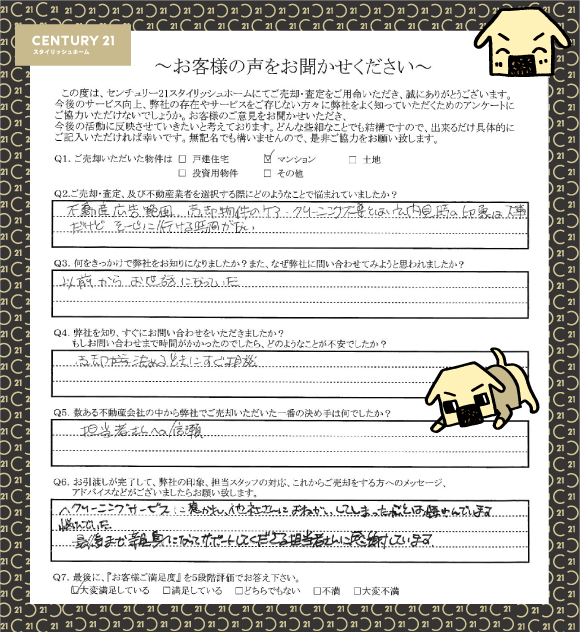 CENTURY 21
スタイリッシュホーム
～お客様の声をお聞かせください～
この度は、センチュリー21スタイリッシュホームにてご売却・査定をご用命いただき、誠にありがとうございます。
今後のサービス向上、弊社の存在やサービスをご存じない方々に弊社をよく知っていただくためのアンケートに
ご協力いただけないでしょうか。お客様のご意見をお聞かせいただき、
今後の活動に反映させていきたいと考えております。どんな些細なことでも結構ですので、出来るだけ具体的に
ご記入いただければ幸いです。無記名でも構いませんので、是非ご協力をお願い致します。
Q1. ご売却いただいた物件は □ 戸建住宅 ☑ マンション □ 土地
□ 投資用物件 □ その他
Q2.ご売却・査定、及び不動産業者を選択する際にどのようなことで悩まれていましたか？
不動産広告範囲、売却物件のケア・クリーニング
だけど そこに行ける時間がない
Q3. 何をきっかけで弊社をお知りになりましたか？また、なぜ弊社に問い合わせてみようと思われましたか？
以前からお世話になっていた
Q4. 弊社を知り、すぐにお問い合わせをいただきましたか？
もしお問い合わせまで時間がかかったのでしたら、どのようなことが不安でしたか？
売却から決めるとともにすぐ相談
Q5. 数ある不動産会社の中から弊社でご売却いただいた一番の決め手は何でしたか？
担当者さんへの信頼
Q6. お引渡しが完了して、弊社の印象、担当スタッフの対応、これからご売却をする方へのメッセージ、
アドバイスなどがございましたらお願い致します。
クリーニングサービスに
最後まで親身になってサポートしてくださる担当者さんに感謝しています
Q7. 最後に、『お客様ご満足度』を5段階評価でお答え下さい。
☑大変満足している □満足している □どちらでもない □不満 □大変不満